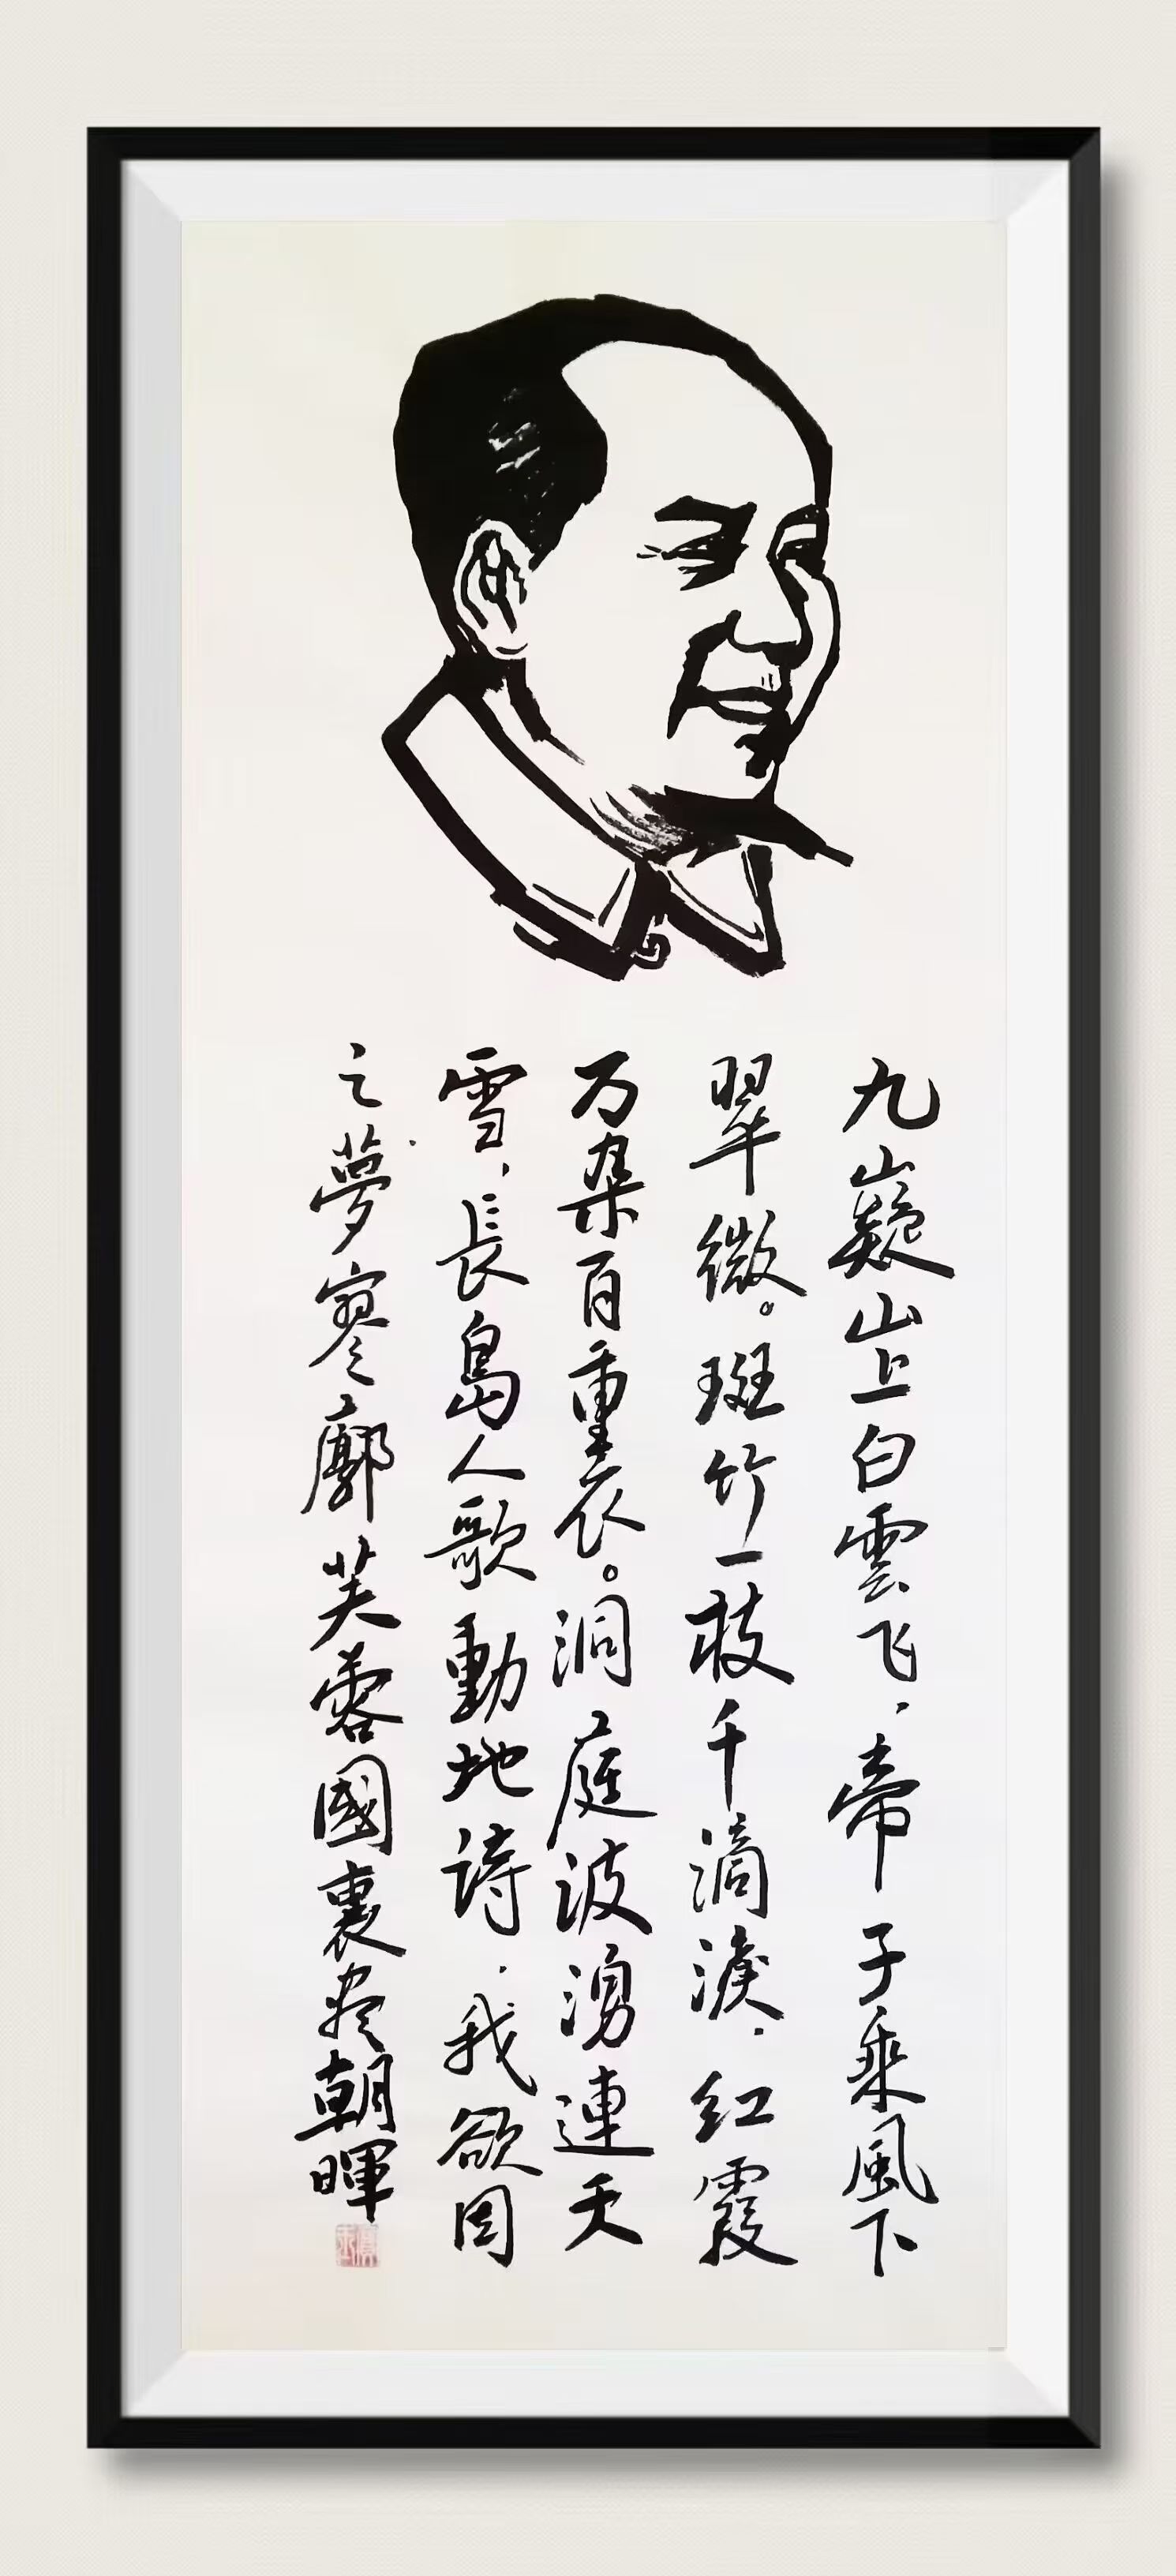 九嶷山上白雲飞，帝子乘風下
翠微。斑竹一枝千滴淚，红霞
万朵百重衣。洞庭波湧連天
雪，長島人歌動地詩，我欲因
之夢寥廓芙蓉國裏盡朝暉